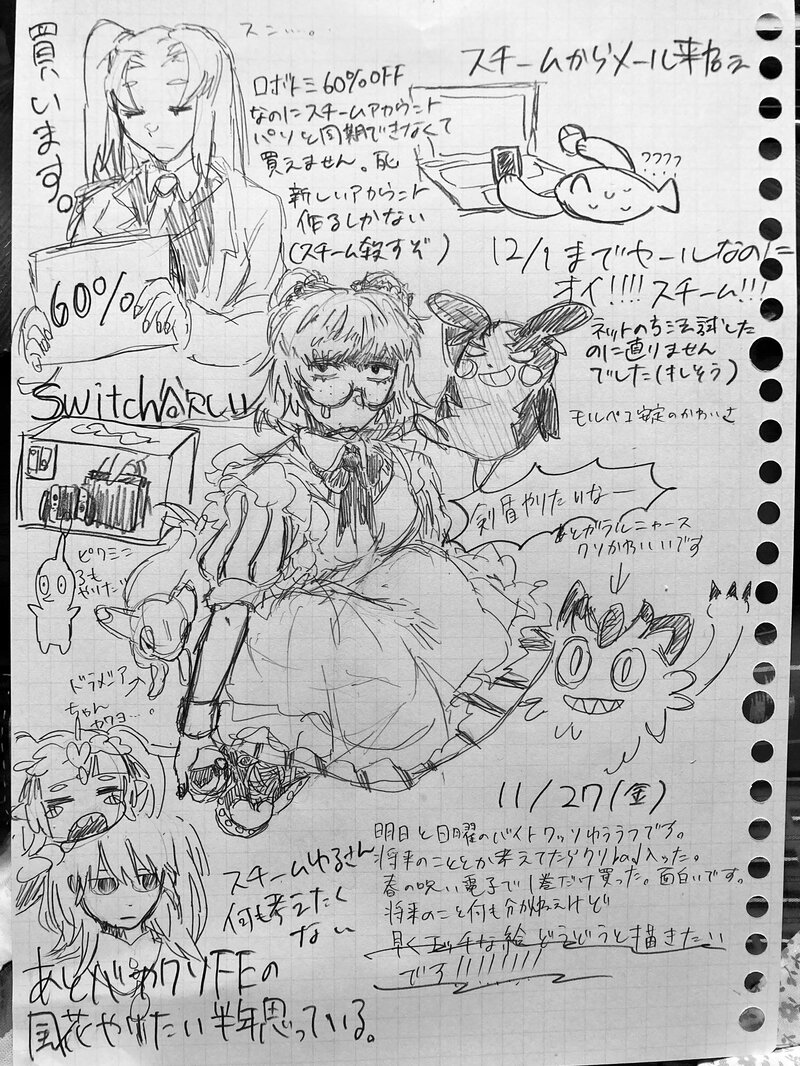 買います。
スン…。
スチームからメール来ねぇ
ロボトミ60%OFF
なのにスチームアカウント
パソと同期できなくて
買えません。死
新しいアカウント
作るしかない
(スチーム殺すぞ)
????
60%
12/1までセールなのに
オイ!!!!スチーム!!!
ネットの方法試した
のに直りません
でした(キレそう)
モルペコ安定のかわいさ
Switch欲しい
剣盾やりたいなー
あとガラルニャース
クソかわいいです
ピクミン
3も
やりたい
ドラメシア
ちゃん
カワヨ…。
11/27(金)
明日と日曜のバイト
ゆううつです。
将来のこととか考えてたらクソbad入った。
春の呪い電子で1巻だけ買った。面白いです。
将来のこと何も分かねえけど
早くエッチな絵どうどうと描きたい
です!!!!!!!!!
スチームゆるさん
何も考えたく
ない
あとペルソナFEの
風花やりたい半年思っている。